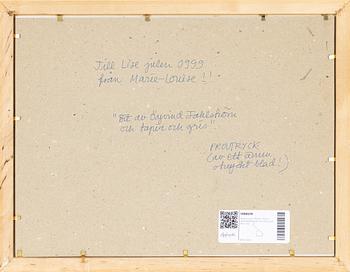 Till Lise julen 1999
från Marie-Louise !!
"Ett av Öyvind Fahlström
och tapir och gris"
PROVTRYCK
(av ett ännu
otryckt blad!)